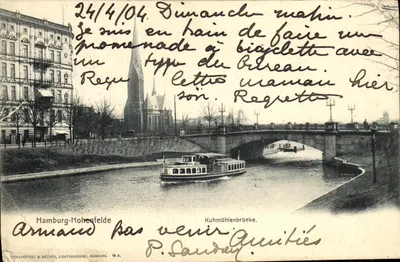 24/4/04. Dimanche matin.
Je suis en train de faire une
promenade à bicyclette avec
un type du bureau.
Reçu lettre maman hier
soir. Regrette
Hamburg-Hohenfelde
Kuhmühlenbrücke.
Armand pas venir. Amitiés
P. Landay